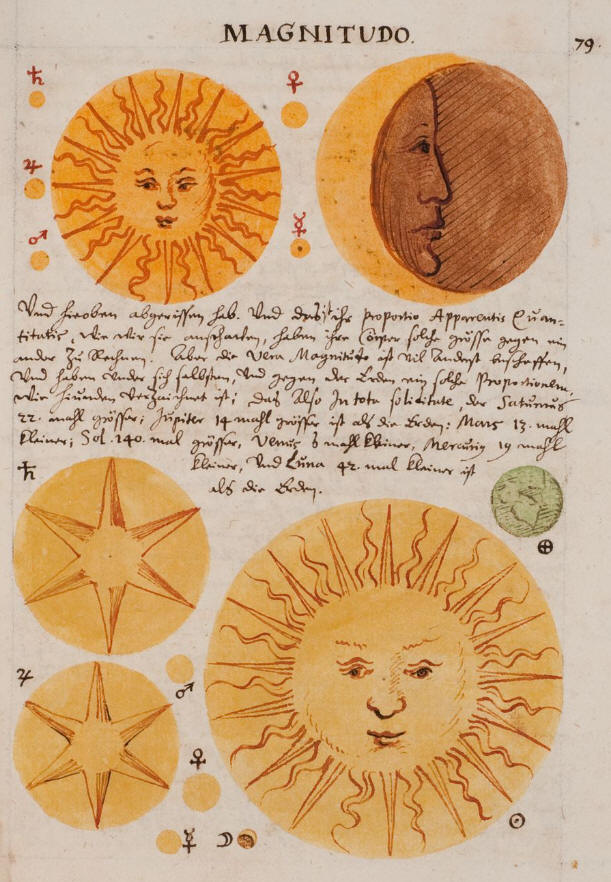 MAGNITUDO.
79.
♄
♀
♃
☿
♂
Und hieoben abgerissen hab. Und dass ihr proportio Apparentis Quan=
titatis, wie wir sie anschawen, haben ihre Cörper solche grösse gegen ein
ander zu Rechnen. Aber die Vera Magnitudo ist vil anderst beschaffen,
Und haben under sich selbsten, Und gegen der Erden ein solche Proportionem
wie hieunden verzeichnet ist; das also In tota soliditate, der Saturnus
22. mahl grösser; Jupiter 14 mahl grösser ist als die Erden: Mars 13. mahl
kleiner; Sol. 140. mal grösser, Venus 3 mahl kleiner, Mercurius 19 mahl
kleiner, Und Luna 42. mal kleiner ist
als die Erden.
♄
⊕
♃
♂
♀
☿
☽
☉